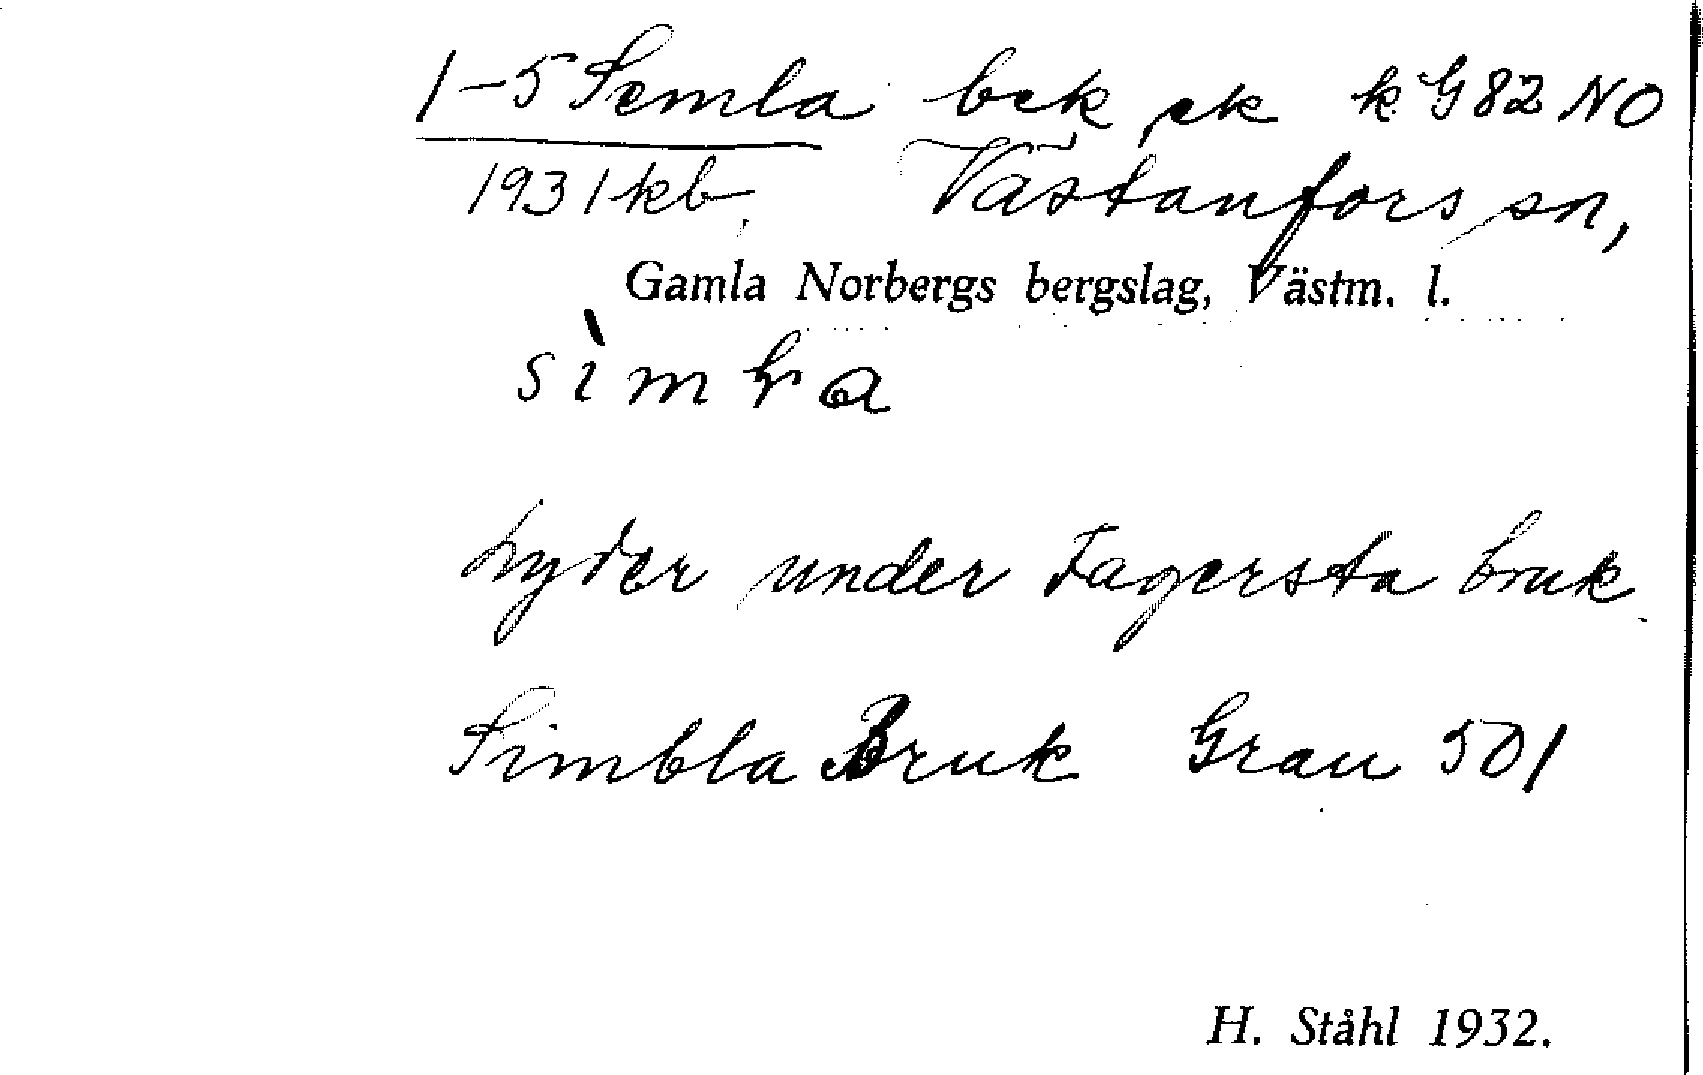 1-5 Semla bek ek k G82 NO
1931 kb. Västanfors sn,
Gamla Norbergs bergslag, Västm. l.
sìmla
Lyder under Fagersta bruk
Simbla Bruk Grau 501
H. Ståhl 1932.